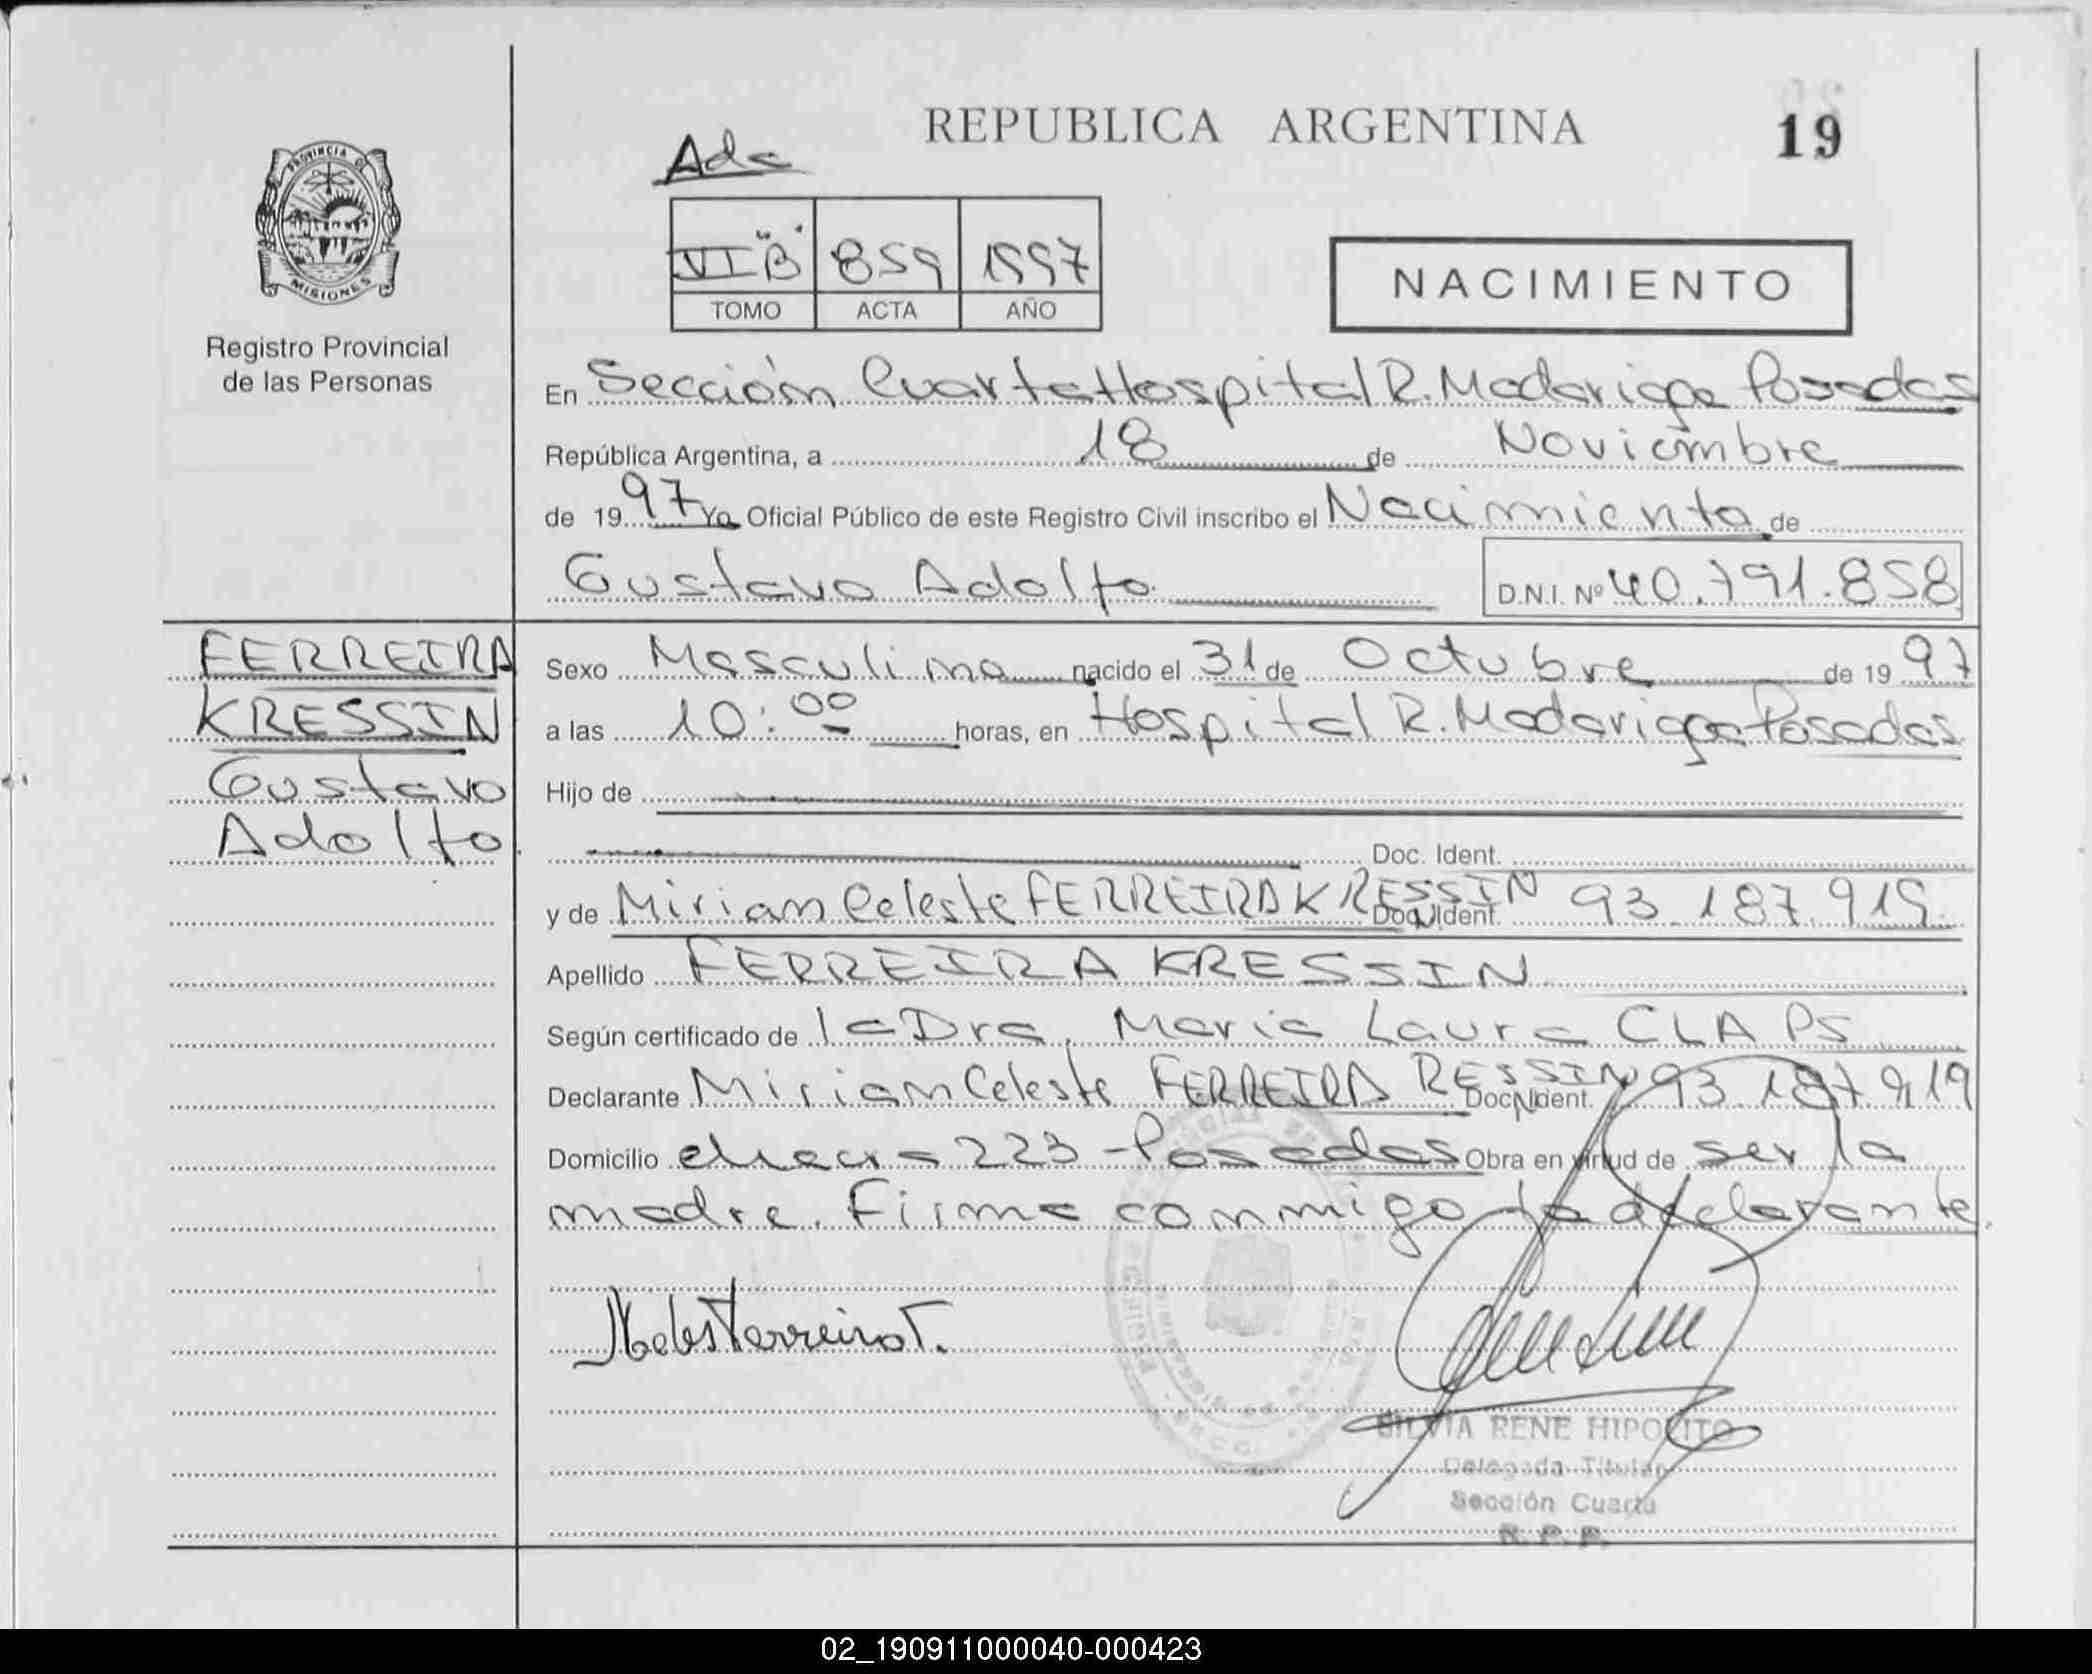 REPUBLICA ARGENTINA
19
PROVINCIA D
MISIONES
Registro Provincial
de las Personas
VI "B" 859 1997
TOMO ACTA AÑO
NACIMIENTO
En Sección Cuarta Hospital R. Madariaga Posadas
República Argentina, a 18 de Noviembre
de 1997 Yo Oficial Público de este Registro Civil inscribo el Nacimiento de
Gustavo Adolfo D.N.I. Nº 40.791.858
FERREIRA
KRESSIN
Gustavo
Adolfo
Sexo Masculino nacido el 31 de Octubre de 1997
a las 10:00 horas, en Hospital R. Madariaga Posadas
Hijo de
Doc. Ident.
y de Mirian Celeste FERREIRA KRESSIN Doc. Ident. 93.187.919
Apellido FERREIRA KRESSIN
Según certificado de la Dra. Maria Laura CLAPS
Declarante Mirian Celeste FERREIRA RESSIN Doc. Ident. 93.187.919
Domicilio 223 - Posadas Obra en virtud de ser la
madre. Firma conmigo la declarante.
SILVIA RENE HIPOLITO
Delegada Titular
Sección Cuarta
R. P. P.
02_190911000040-000423